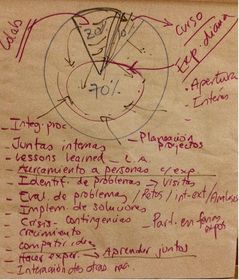 Colab
20%
10%
curso
Exp. diaria
70%
. Apertura
. Interés
- Integ. proc
- Planeación proyectos
- Juntas internas
- Lessons learned - L A
- Acercamiento a personas c/exp
- Identif. de problemas → Visitas
- Eval. de problemas / Retos / int-ext/Analisis
- Implem. de soluciones
- Crisis - contingencias
- Part. en foros
- crecimiento
- compartir ideas
- Hacer exper. → Aprender juntos
- Interacción de otras